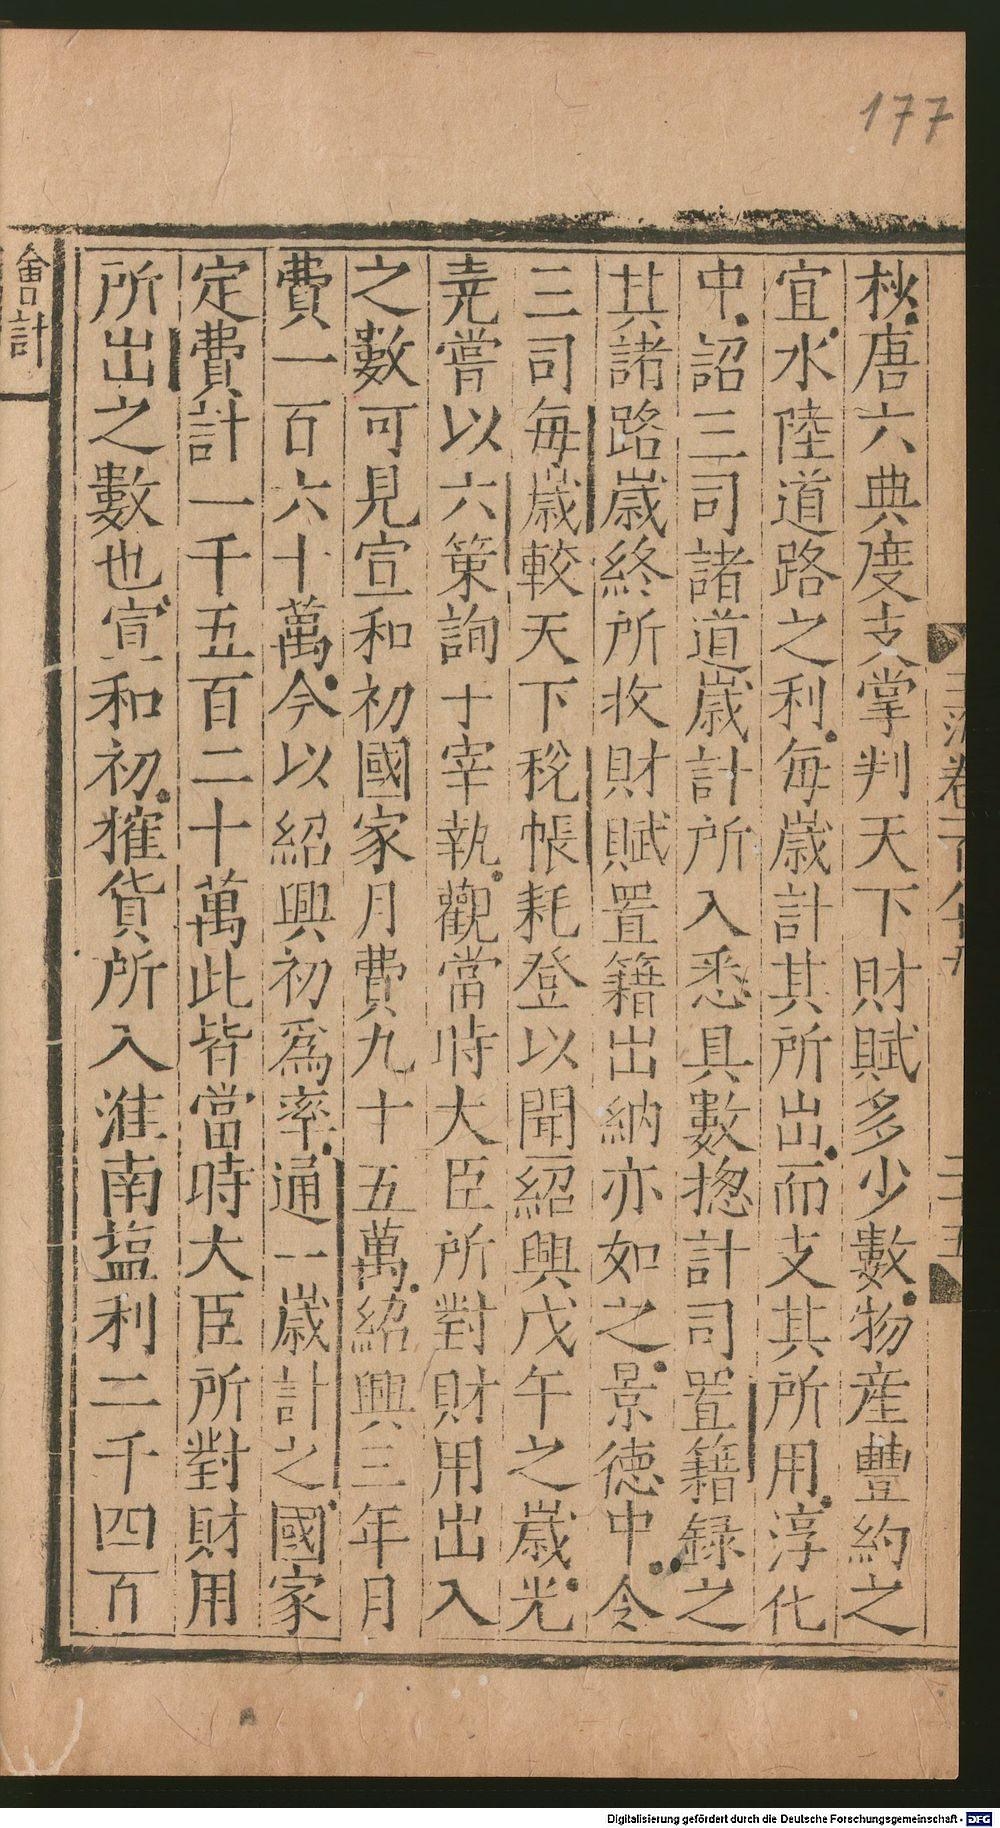 177
秋唐六典度支掌判天下財賦多少數物産豐約之
宜水陸道路之利毎歳計其所出而支其所用淳化
中詔三司諸道歳計所入悉具數揔計司置籍録之
其諸路歳終所收財賦置籍出納亦如之景德中令
三司毎歳較天下稅帳耗登以聞紹興戊午之歳光
尭嘗以六策詢十宰執觀當時大臣所對財用出入
之數可見宣和初國家月費九十五萬紹興三年月
費一百六十萬今以紹興初爲率通一歳計之國家
定費計一千五百二十萬此皆當時大臣所對財用
所出之數也宣和初搉貨所入淮南塩利二千四百
會計
Digitalisierung gefördert durch die Deutsche Forschungsgemeinschaft - DFG